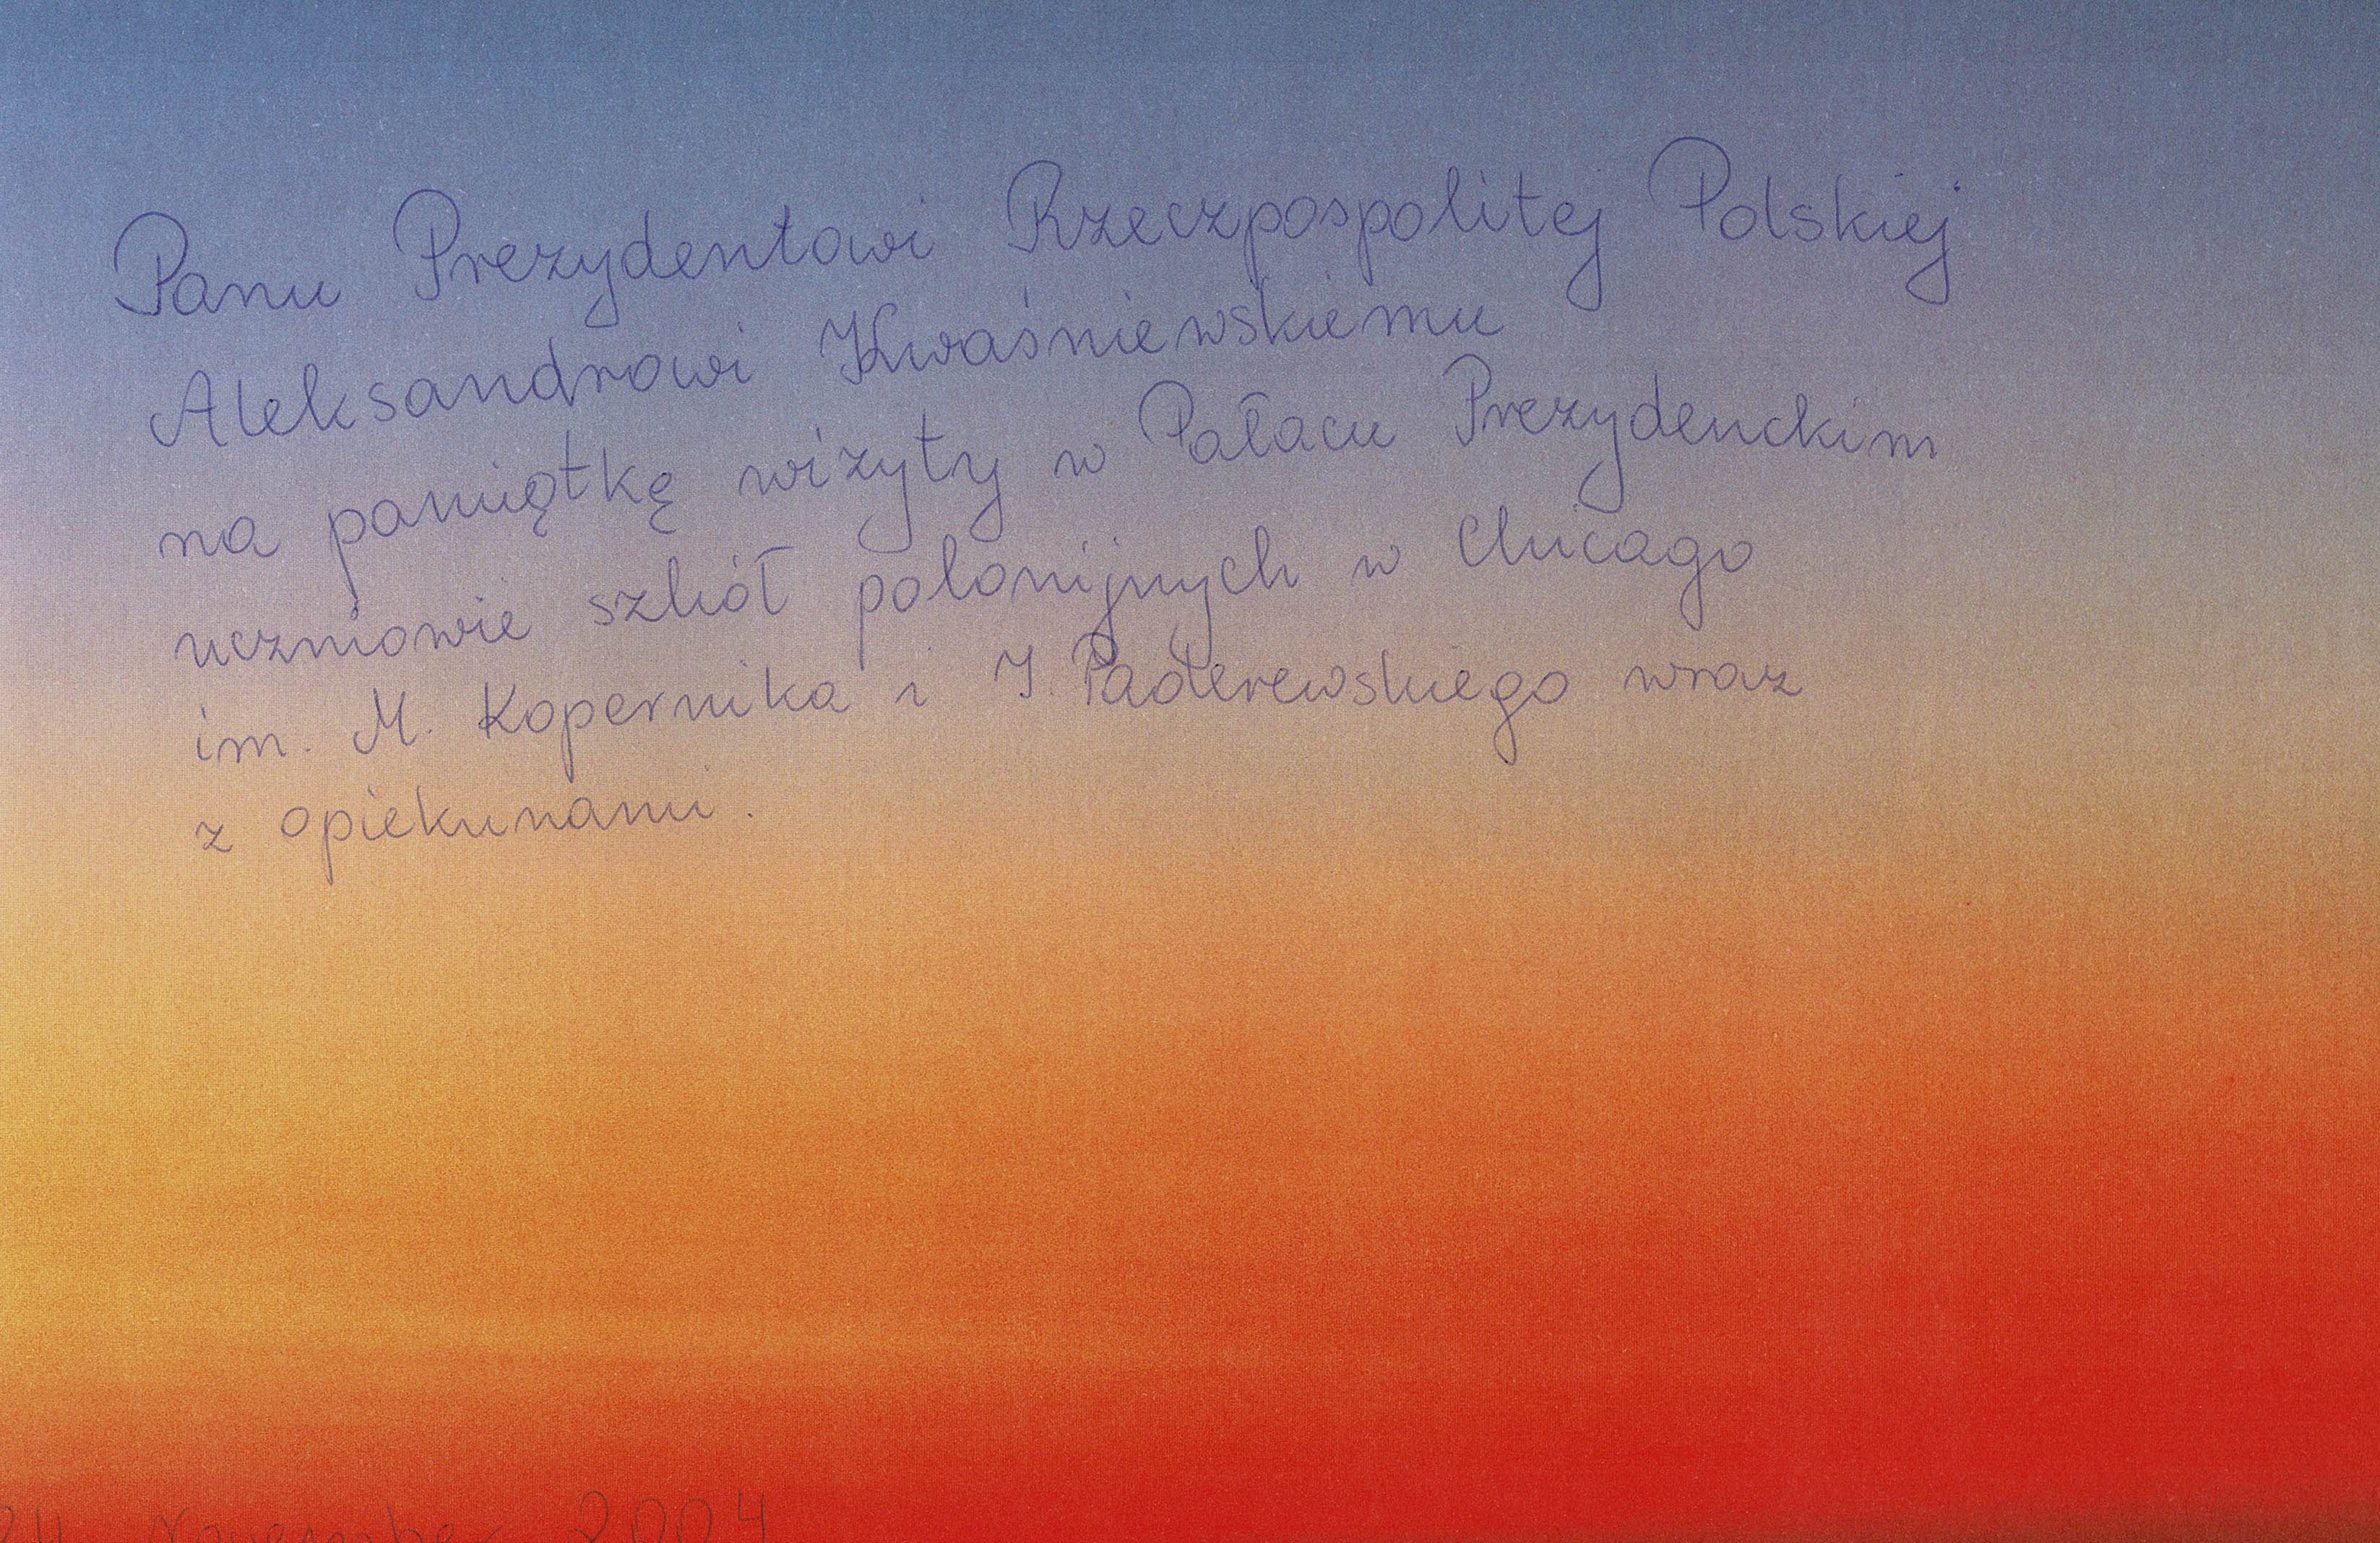 Panu Prezydentowi Rzeczpospolitej Polskiej
Aleksandrowi Kwaśniewskiemu
na pamiątkę wizyty w Pałacu Prezydenckim
uczniowie szkół polonijnych w Chicago
im. M. Kopernika i I. Paderewskiego wraz
z opiekunami.
24 November 2004